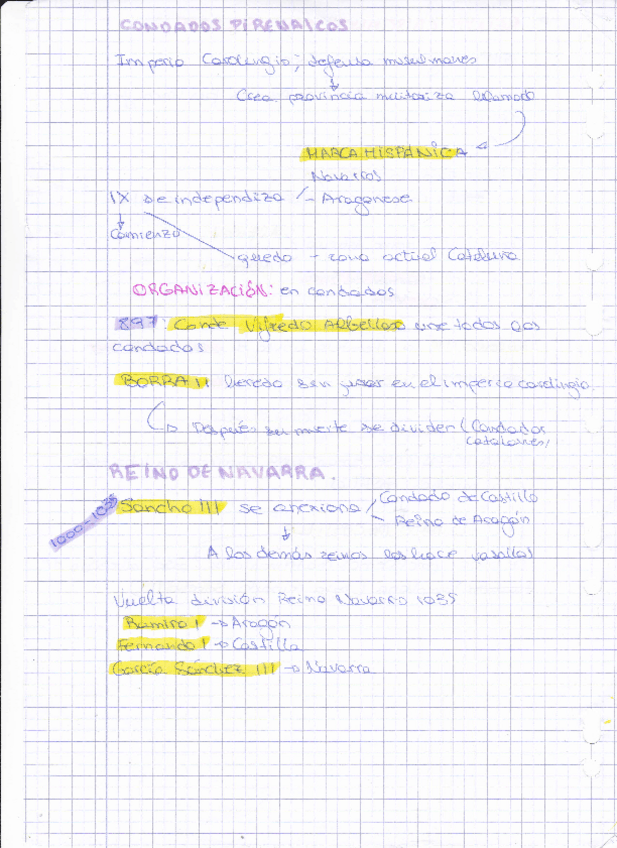 CONDADOS PIRENAICOS
Imperio Carolingio; defensa musulmanes
Crea provincia militariza llamada
MARCA HISPÁNICA
Navarros
IX se independiza - Aragonese
Comienzo
quedo - zona actual Cataluña
ORGANIZACIÓN: en condados
897: Conde Vifredo Albelloso une todos los
condados
BORRA II heredo sin jurar en el imperio carolingio
Después su muerte se divider (Condador
catalanes)
REINO DE NAVARRA.
1000-1035 Sancho III se anexiona Condado de Castilla
- Reino de Aragón
A los demás reinos los hace vasallos
Vuelta división Reino Navarro 1035
Ramiro I → Aragón
Fernando I → Castilla
García Sánchez III → Navarra